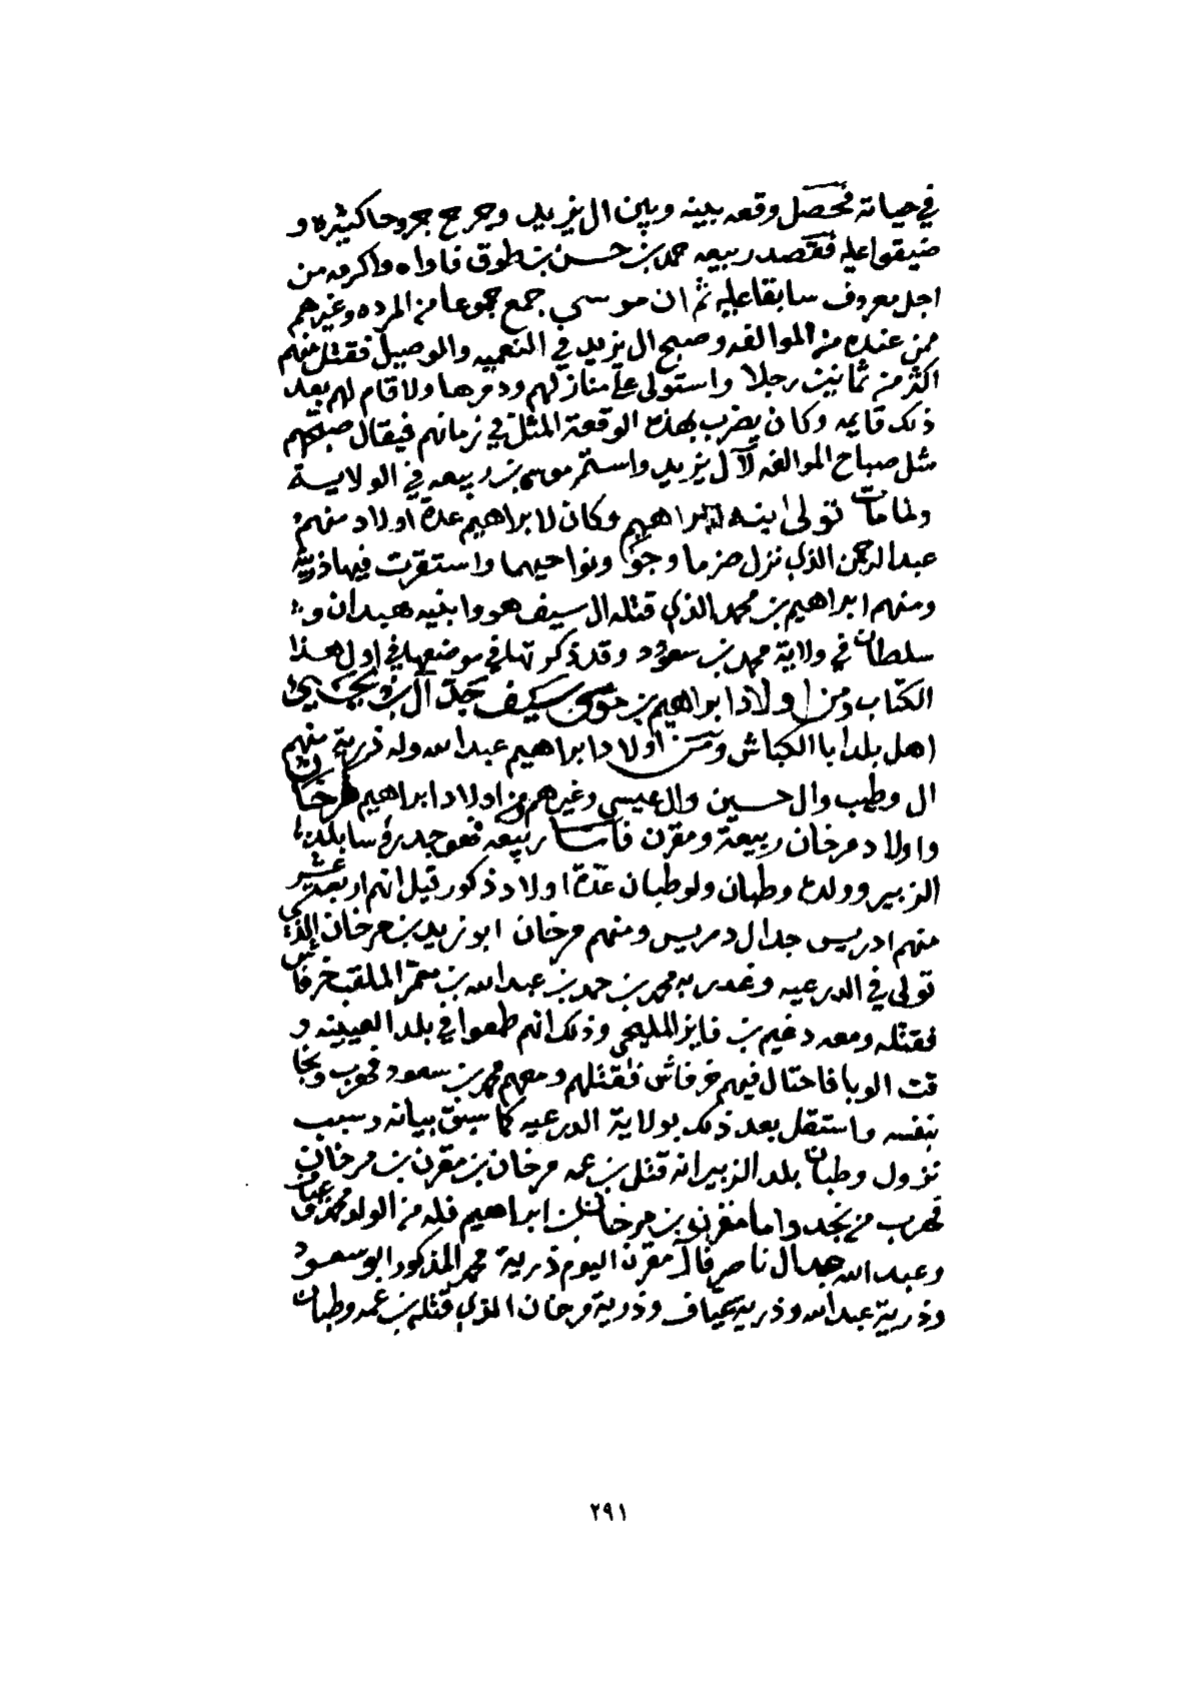 في حياته فحصل وقعه بينه وبين ال يزيد وجرح جروحا كثيره و
ضيقوا عليه فقصد ربيعه حمد بن حسن بن طوق فاواه واكرمه من
اجل معروف سابقا عليه ثم ان موسى جمع جموعا من المرده وغيرهم
ممن عنده من الموالفه وصبح ال يزيد في النعميه والوصيل فقتل منهم
اكثر من ثمانين رجلا واستولى على منازلهم ودمرها ولا قام لهم بعد
ذلك قايمه وكان يضرب بهذه الوقعة المثل في زمانهم فيقال صبحهم
مثل صباح الموالفه لآل يزيد واستمر موسى بن ربيعه في الولاية
ولما مات تولى ابنه ابراهيم وكان لابراهيم عدة اولاد منهم
عبد الرحمن الذي نزل ضرما وجو ونواحيهما واستقرت فيها ذريته
ومنهم ابراهيم بن محمد الذي قتله ال سيف هو وابنيه هبدان و
سلطان في ولاية محمد بن سعود وقد ذكرتها في موضعها في اول هذا
الكتاب ومن اولاد ابراهيم بن موسى سيف جد آل بن يحيى
اهل بلد ابا الكباش ومن اولاد ابراهيم عبد الله وله ذرية منهم
ال وطيب وال حسين وال عيسى وغيرهم ومن اولاد ابراهيم مرخان
واولاد مرخان ربيعة ومقرن فاما ربيعه فهو جد رؤسا بلد
الزبير وولده وطبان ولوطبان عدة اولاد ذكور قيل انهم اربعة عشر
منهم ادريس جد ال دريس ومنهم مرخان ابو زيد بن مرخان الذي
تولى في الدرعيه وغدر به محمد بن حمد بن عبد الله بن معمر الملقب خرفاش
فقتله ومعه دغيم بن فايز المليحي وذلك انهم طمعوا في بلد العيينه و
قت الوبا فاحتال فيهم خرفاش فقتلهم ومعهم محمد بن سعود فهرب ونجا
بنفسه واستقل بعد ذلك بولاية الدرعيه كما سبق بيانه وسبب
نزول وطبان بلد الزبير انه قتل بن عمه مرخان بن مقرن بن مرخان
فهرب من نجد واما مقرن بن مرخان بن ابراهيم فله من الولد محمد وعياف
وعبد الله جد ال ناصر فال مقرن اليوم ذرية محمد المذكور ابو سعود
وذرية عبد الله وذرية عياف وذرية مرخان الذي قتله بن عمه وطبان
٢٩١